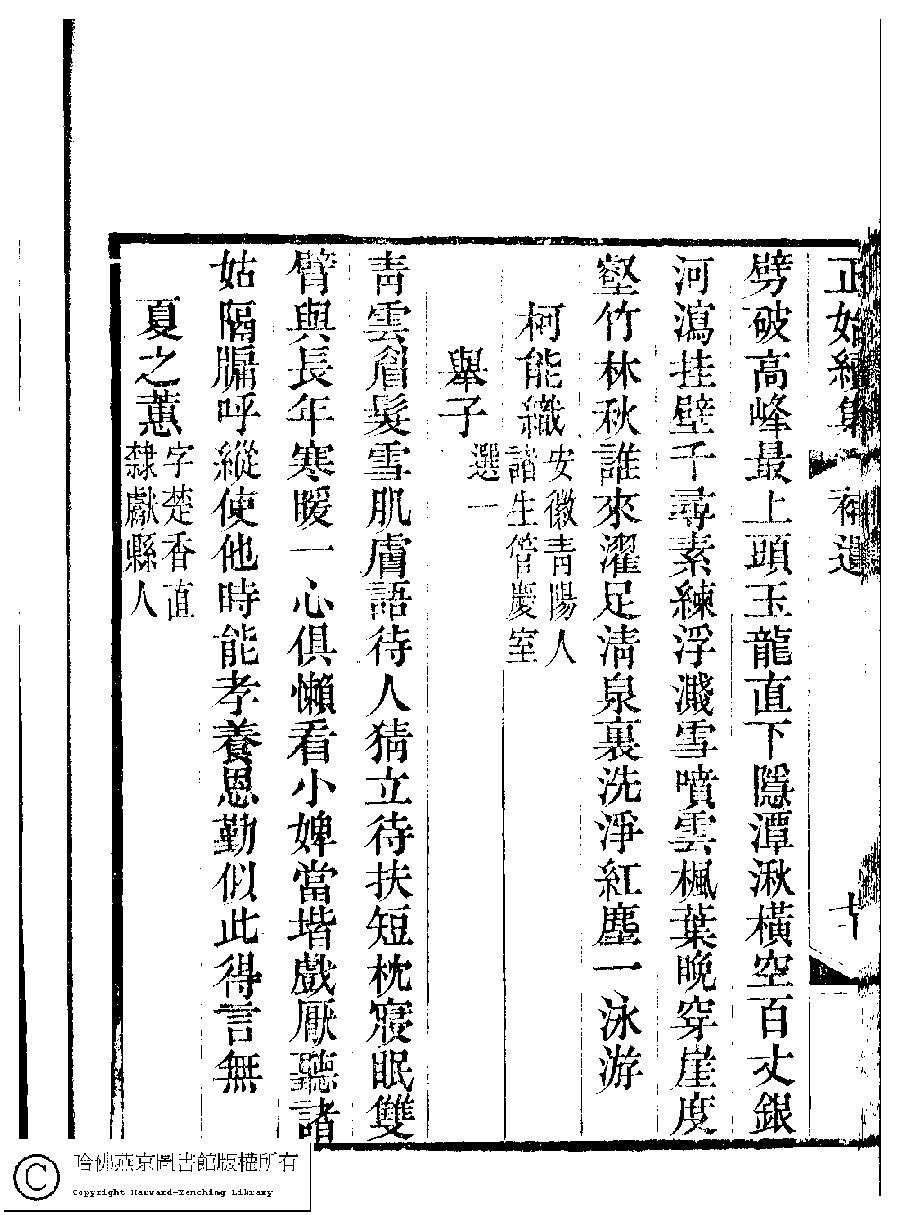 正始續集 補遺 十
劈破高峰最上頭玉龍直下隱潭湫橫空百丈銀
河瀉挂壁千尋素練浮濺雪噴雲楓葉晚穿崖度
壑竹林秋誰來濯足淸泉裏洗淨紅塵一泳游
柯能織 安徽靑陽人
諸生管慶室
選一
舉子
靑雲眉髮雪肌膚語待人猜立待扶短枕寢眠雙
臂與長年寒暖一心俱懶看小婢當堦戲厭聽諸
姑隔牖呼縱使他時能孝養恩勤似此得言無
夏之蕙 字楚香直
隸獻縣人
哈佛燕京圖書館版權所有
Copyright Harvard-Yenching Library